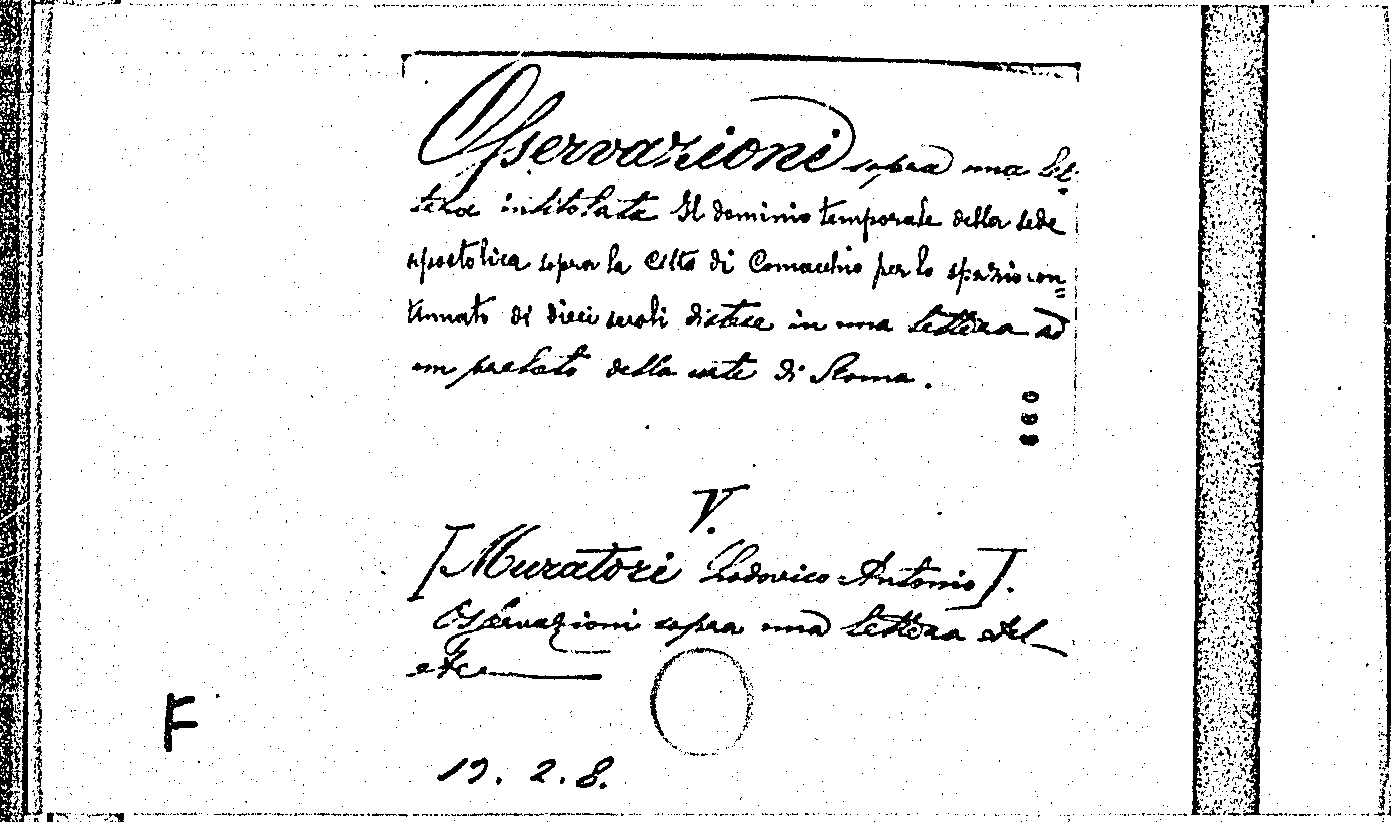 Osservazioni sopra una let-
tera intitolata Il dominio temporale della sede
apostolica sopra la Città di Comacchio per lo spazio con=
tinuato di dieci secoli distesa in una lettera ad
un prelato della corte di Roma.
660
V.
[Muratori Lodovico Antonio].
Osservazioni sopra una lettera
etc
F
19. 2. 8.